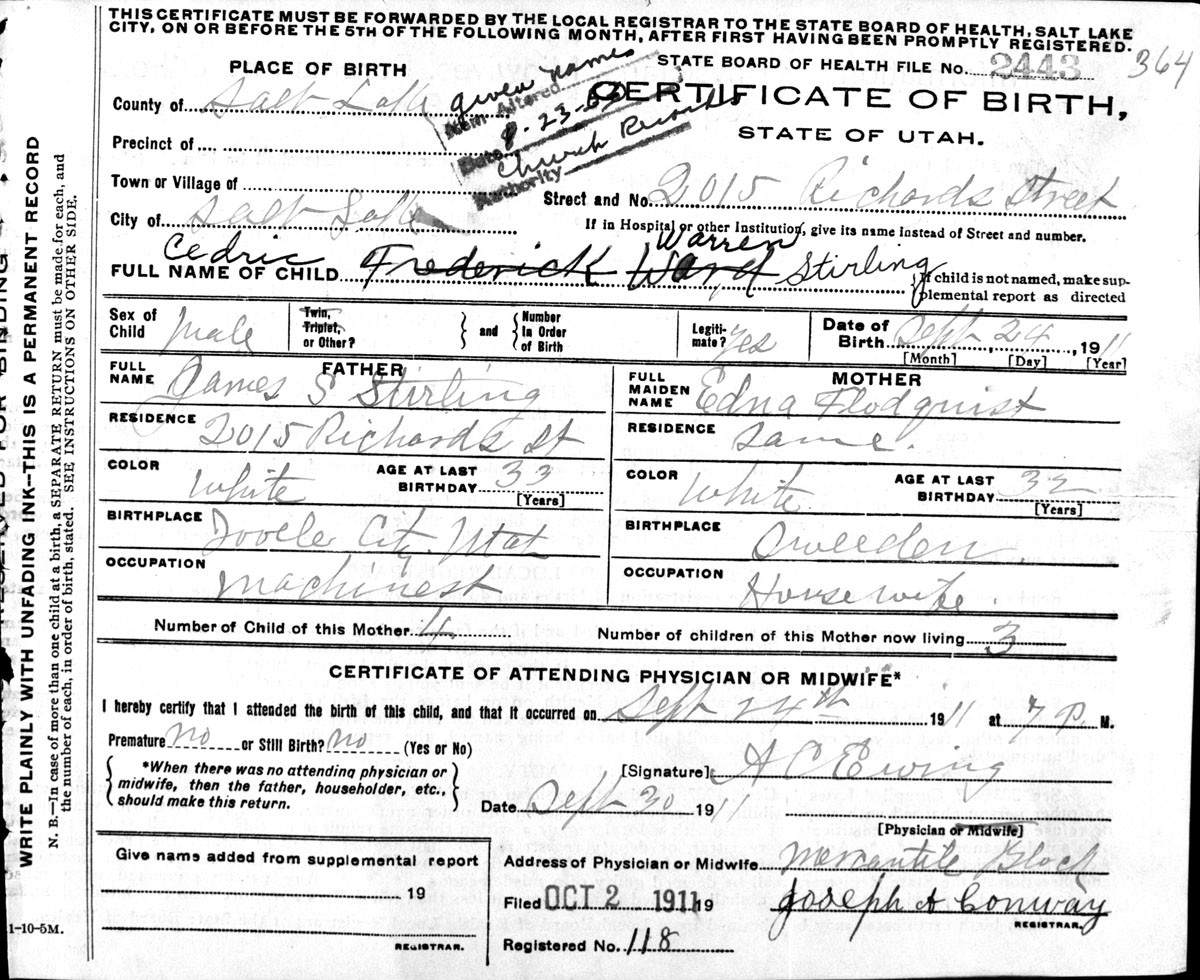 THIS CERTIFICATE MUST BE FORWARDED BY THE LOCAL REGISTRAR TO THE STATE BOARD OF HEALTH, SALT LAKE
CITY, ON OR BEFORE THE 5TH OF THE FOLLOWING MONTH, AFTER FIRST HAVING BEEN PROMPTLY REGISTERED.
STATE BOARD OF HEALTH FILE No. 2443 364
PLACE OF BIRTH
CERTIFICATE OF BIRTH,
STATE OF UTAH.
given names
Item Altered
8-23-
Date
Church Records
Authority
County of Salt Lake
Precinct of
Town or Village of
Street and No. 2015 Richards Street
City of Salt Lake
If in Hospital or other Institution, give its name instead of Street and number.
Cedric Warren
FULL NAME OF CHILD Frederick Ward Stirling
If child is not named, make sup-
plemental report as directed
Sex of Child Male
Twin, Triplet, or Other?
and
Number In Order of Birth
Legiti-mate? Yes
Date of Birth Sept 24, 1911
[Month] [Day] [Year]
FATHER
FULL NAME James S Stirling
MOTHER
FULL MAIDEN NAME Edna Flodquist
RESIDENCE 2015 Richards St
RESIDENCE same.
COLOR White
AGE AT LAST BIRTHDAY 33
[Years]
COLOR White
AGE AT LAST BIRTHDAY 32
[Years]
BIRTHPLACE Tooele City Utah
BIRTHPLACE Sweeden
OCCUPATION Machinest
OCCUPATION Housewife
Number of Child of this Mother 4
Number of children of this Mother now living 3
CERTIFICATE OF ATTENDING PHYSICIAN OR MIDWIFE*
I hereby certify that I attended the birth of this child, and that it occurred on Sept 24th 1911 at 7 P. M.
Premature no or Still Birth? no (Yes or No)
*When there was no attending physician or
midwife, then the father, householder, etc.,
should make this return.
[Signature] A C Ewing
Date Sept 30 1911
[Physician or Midwife]
Give name added from supplemental report
19
REGISTRAR.
Address of Physician or Midwife Mercantile Block
Filed OCT 2 1911 19 Joseph A Conway
REGISTRAR.
Registered No. 118
1-10-5M.
WRITE PLAINLY WITH UNFADING INK—THIS IS A PERMANENT RECORD
N. B.—In case of more than one child at a birth, a SEPARATE RETURN must be made for each, and
the number of each, in order of birth, stated. SEE INSTRUCTIONS ON OTHER SIDE.